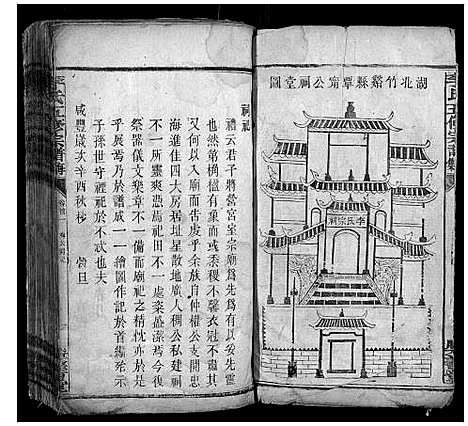 湖北竹谿縣覃甯公祠堂圖
李氏宗祠
李氏五修宗譜
祠祀
禮云君子將營宮室宗廟為先為有以妥先靈
也然第構有象而或黍稷不馨衣冠不肅其
何以入廟而告虔乎余族自仲權公支開忠
海進佳四大房居址星散地廣人稠公私建祠
不一所靈爽憑焉祀田不一處粢盛潔焉今復
祭器儀文樂章不一備而廟祀之精忱亦於是
乎展焉乃於譜成一一繪圖作記於首衛示
子孫世守禋祀於不忒也夫
咸豐歲次辛酉秋杪 旦